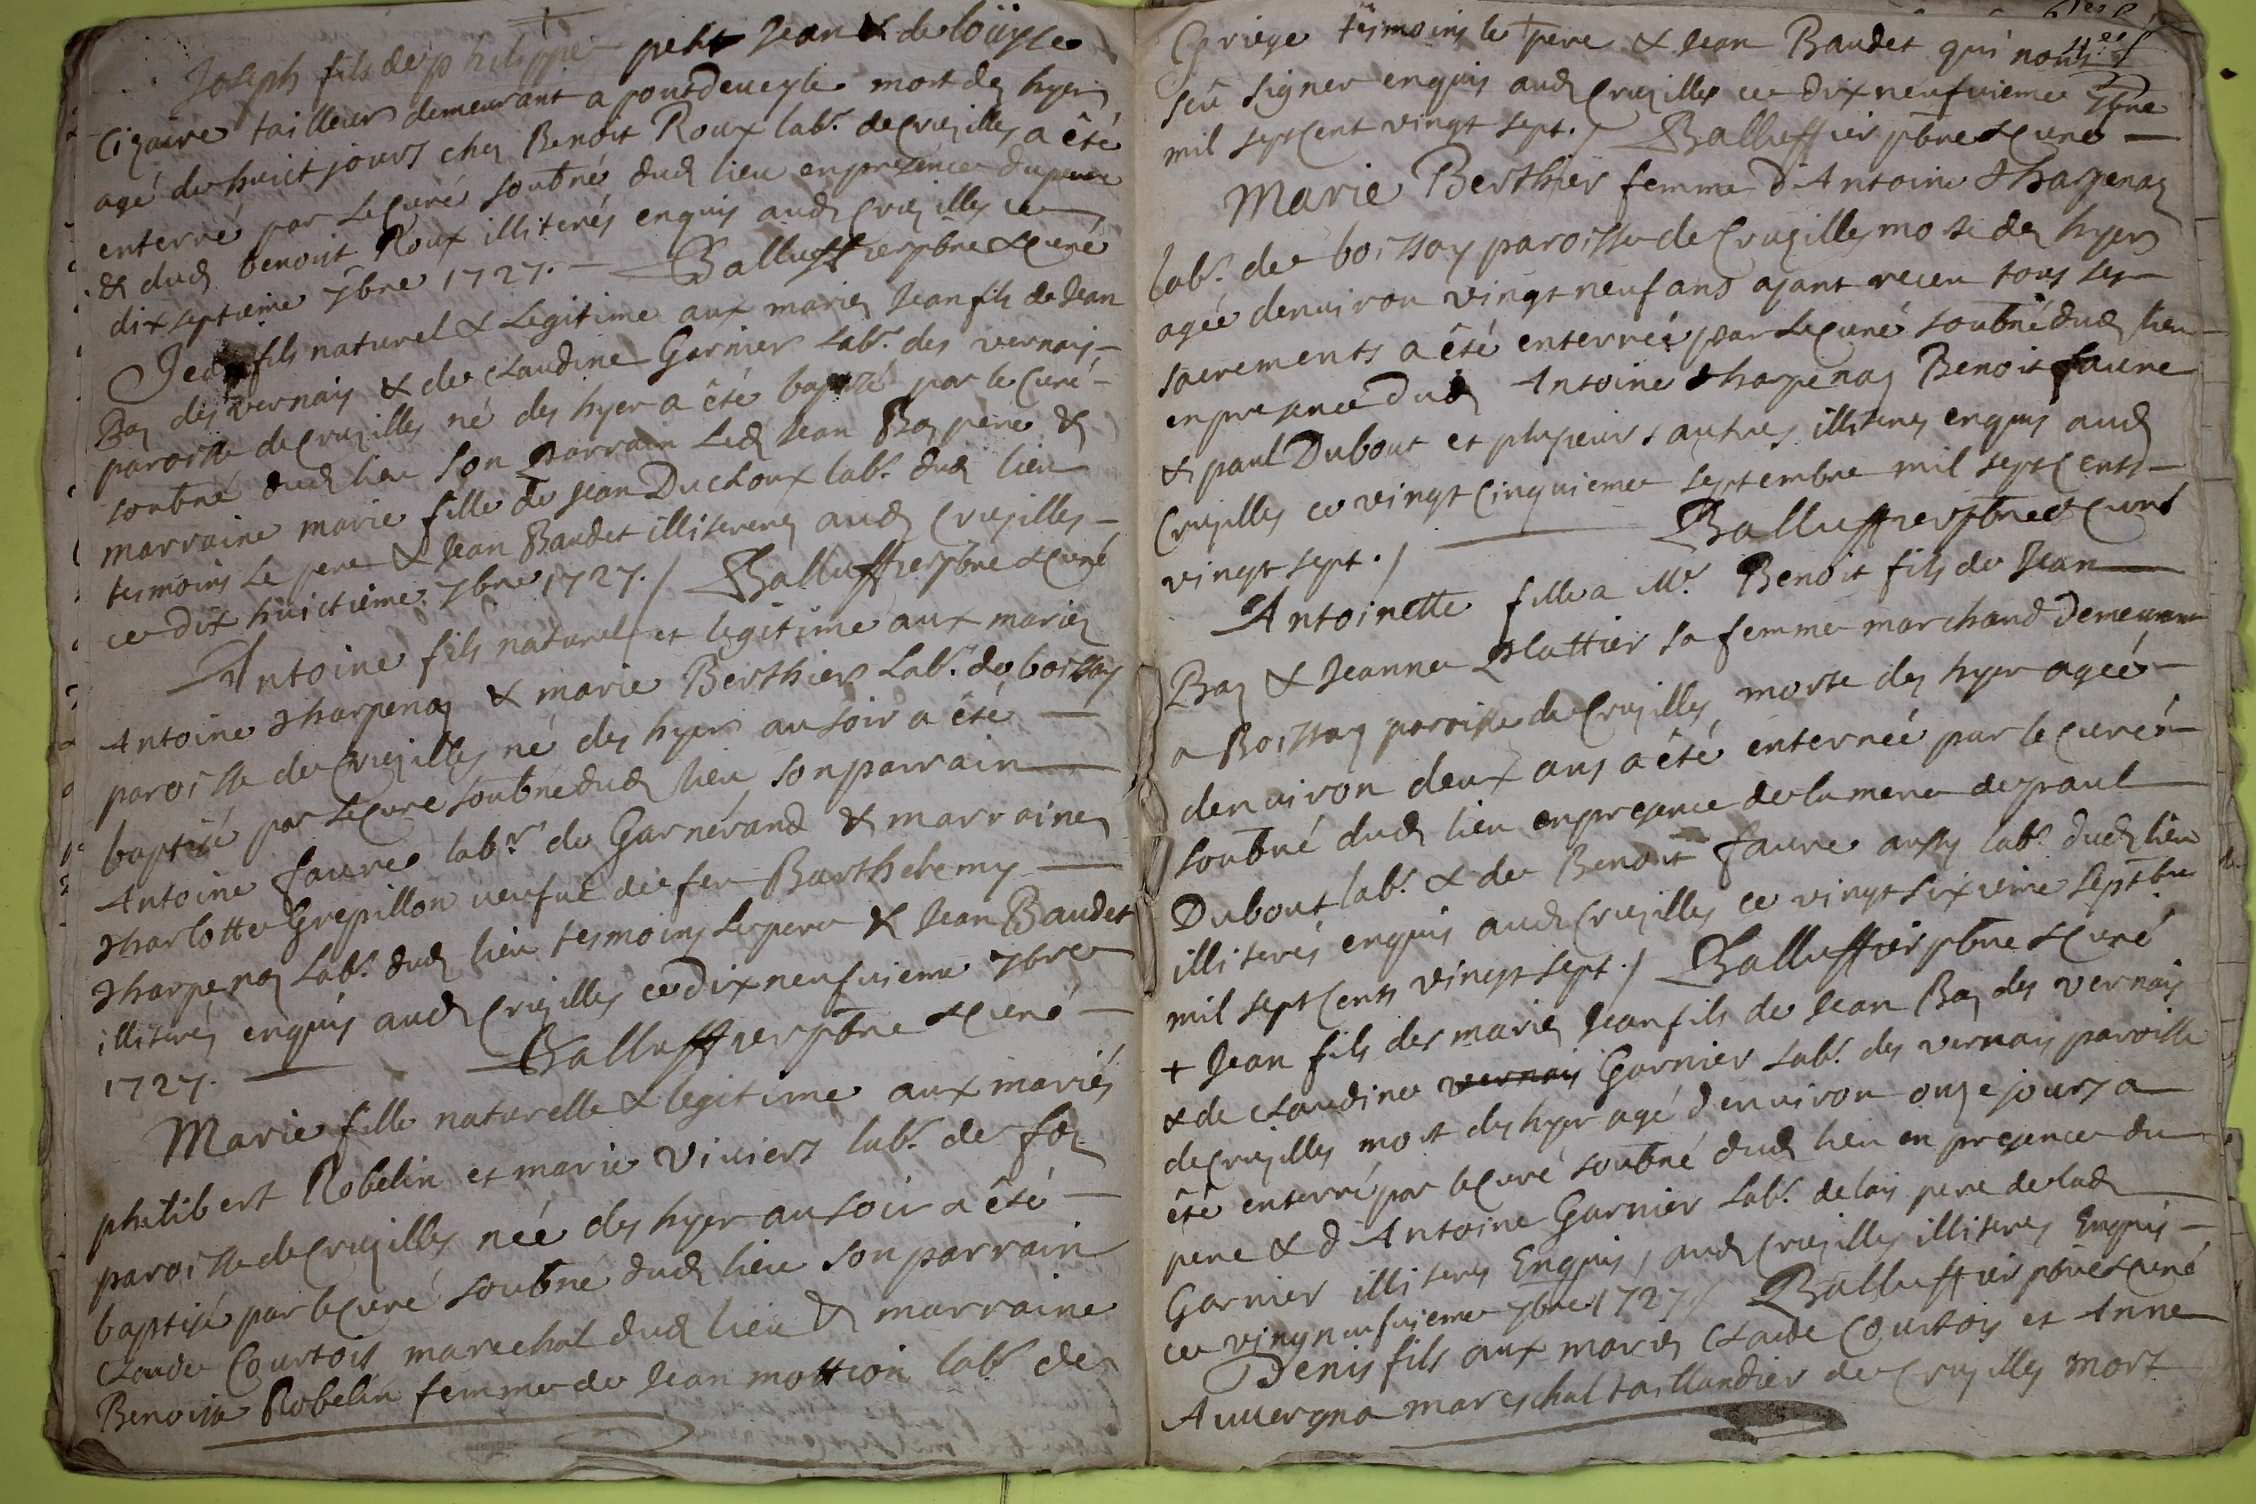 Joseph fils de philippe petit Jean & de loüyse
Cizaire tailleur demeurant a pontdeveyle mort dez hyer
agé de huict jours chez Benoit Roux labr. de Cruzilles a êté
enterré par le Curé soubné dud lieu en presence du pere
& dud benoist Roux illiterés enquis aud Cruzilles ce
dix septieme 7bre 1727. Balluffier pbre & Curé
Jean fils naturel & Legitime aux mariez Jean fils de Jean
Bay des vernais & de Claudine Garnier Labr. des vernais
paroisse de Cruzilles né des hyer a êté baptizé par le Curé
soubné dud lieu son parrain Led Jean Bay pere &
marraine marie fille de Jean Ducloux labr. dud lieu
tesmoins Le pere & Jean Baudet illiterez aud Cruzilles
ce dix huictieme 7bre 1727./ Balluffier pbre & curé
Antoine fils naturel et legitime aux mariez
Antoine Charpenay & marie Berthier Labr. de boissay
paroisse de Cruzilles né des hyer au soir a êté
baptisé par Le Curé soubné dud lieu son parrain
Antoine faure labr. de Garnerand & marraine
Charlotte Grepillon veufue de feu Barthelemy
Charpenay Labr. dud lieu tesmoins Le pere & Jean Baudet
illiterez enquis aud Cruzilles ce dix neufuieme 7bre
1727. Balluffier pbre & Curé
Marie fille naturelle & legitime aux mariés
philibert Robelin et marie Viviers labr. de foz
paroisse de Cruzilles née des hyer au soir a êté
baptisé par le Curé soubné dud lieu son parrain
Claude Courtois marechal dud lieu & marraine
Benoiste Robelin femme de Jean mottion labr. de
Griege tesmoins le pere & Jean Baudet qui n'ont
sçu signer enquis aud Cruzilles ce dix neufuieme 7bre
mil sept Cent vingt sept./ Balluffier pbre & Curé
Marie Berthier femme d'Antoine Charpenay
labr. de boissay paroisse de Cruzilles morte dez hyer
agée denviron vingt neuf ans ayant receu tous ses
sacrements a êté enterrée par Le Curé soubné dud lieu
en presence dud Antoine Charpenay Benoit faure
& paul Dubout et plusieurs autres illiteres enquis aud
Cruzilles ce vingt Cinquieme septembre mil sept Cents
vingt sept./ Balluffier pbre & Curé
Antoinette fille a Mr. Benoit fils de Jean
Bay & Jeanne Plattier sa femme marchand demeurant
a Boissay paroisse de Cruzilles morte des hyer agée
denviron deux ans a êté enterrée par le Curé
soubné dud lieu en presence de la mere de paul
Dubout labr. & de Benoit faure aussy labr. dud lieu
illiterés enquis aud Cruzilles ce vingt sixieme septbre
mil sept Cents vingt sept./ Balluffier pbre & Curé
+ Jean fils des mariez Jean fils de Jean Bay des vernais
& de Claudine vernais Garnier Labr. des vernais paroisse
de Cruzilles mort des hyer agé denviron onze jours a
êté enterré par le Curé soubné dud lieu en presence du
pere & d'Antoine Garnier Labr. de lais pere de lad
Garnier illiteres Enquis, aud Cruzilles illiteres Enquis
ce vingneufuieme 7bre 1727./ Balluffier pbre & Curé
Denis fils aux mariez Claude Courtois et Anne
Auvergna mareschal taillandier de Cruzilles mort